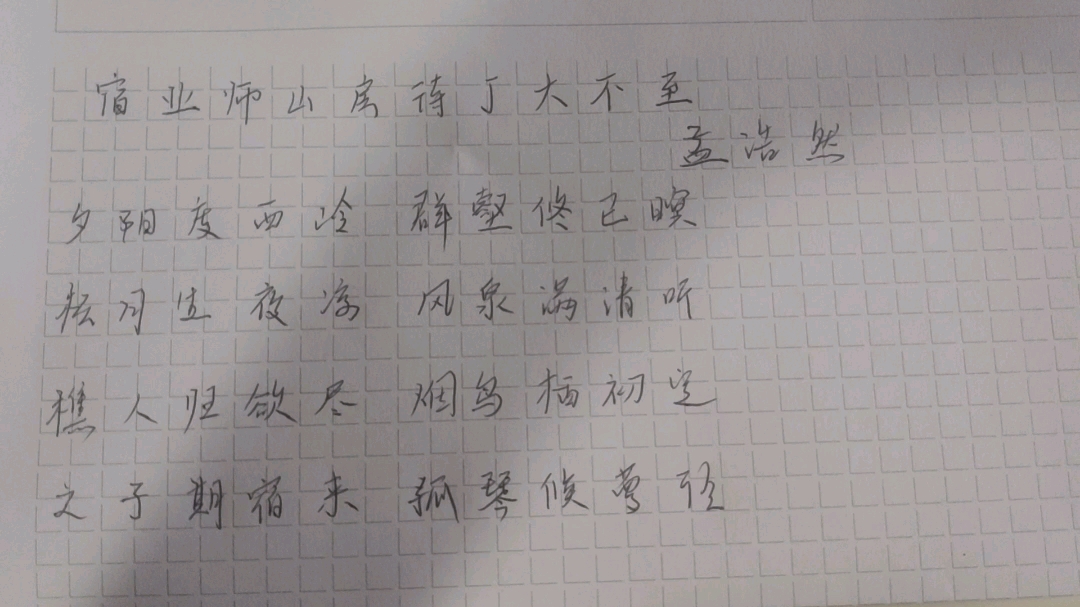 宿业师山房待丁大不至
孟浩然
夕阳度西岭 群壑倏已暝
松月生夜凉 风泉满清听
樵人归欲尽 烟鸟栖初定
之子期宿来 孤琴候萝径